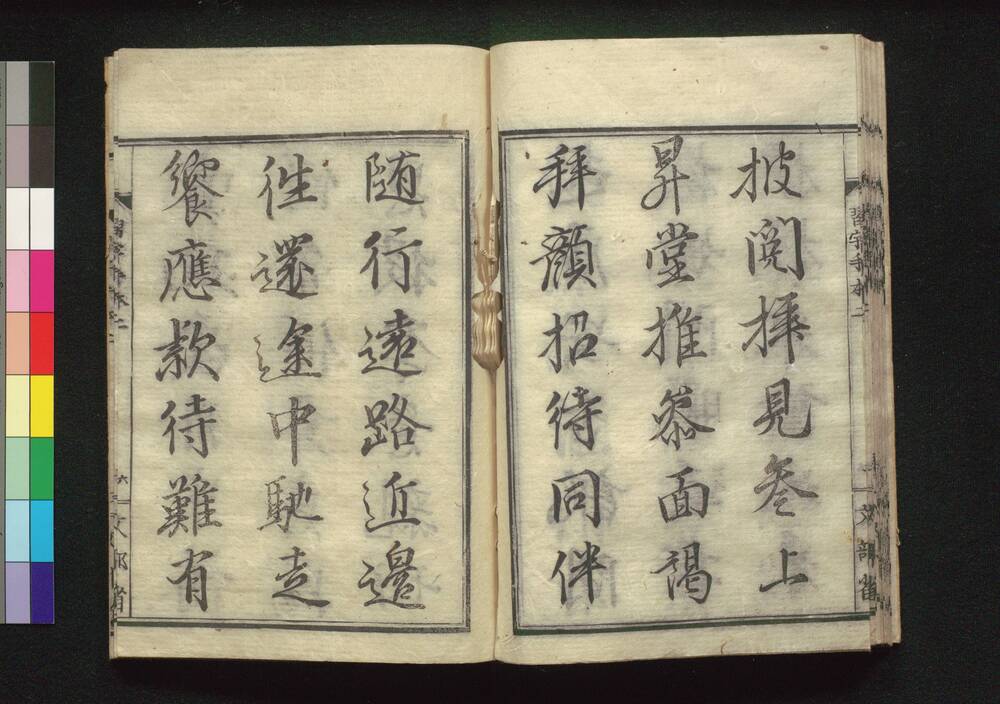 披閲拝見参上
昇堂推参面謁
拝顔招待同伴
随行遠路近邊
往還途中馳走
饗應款待難有
習字手本二
六
文部省